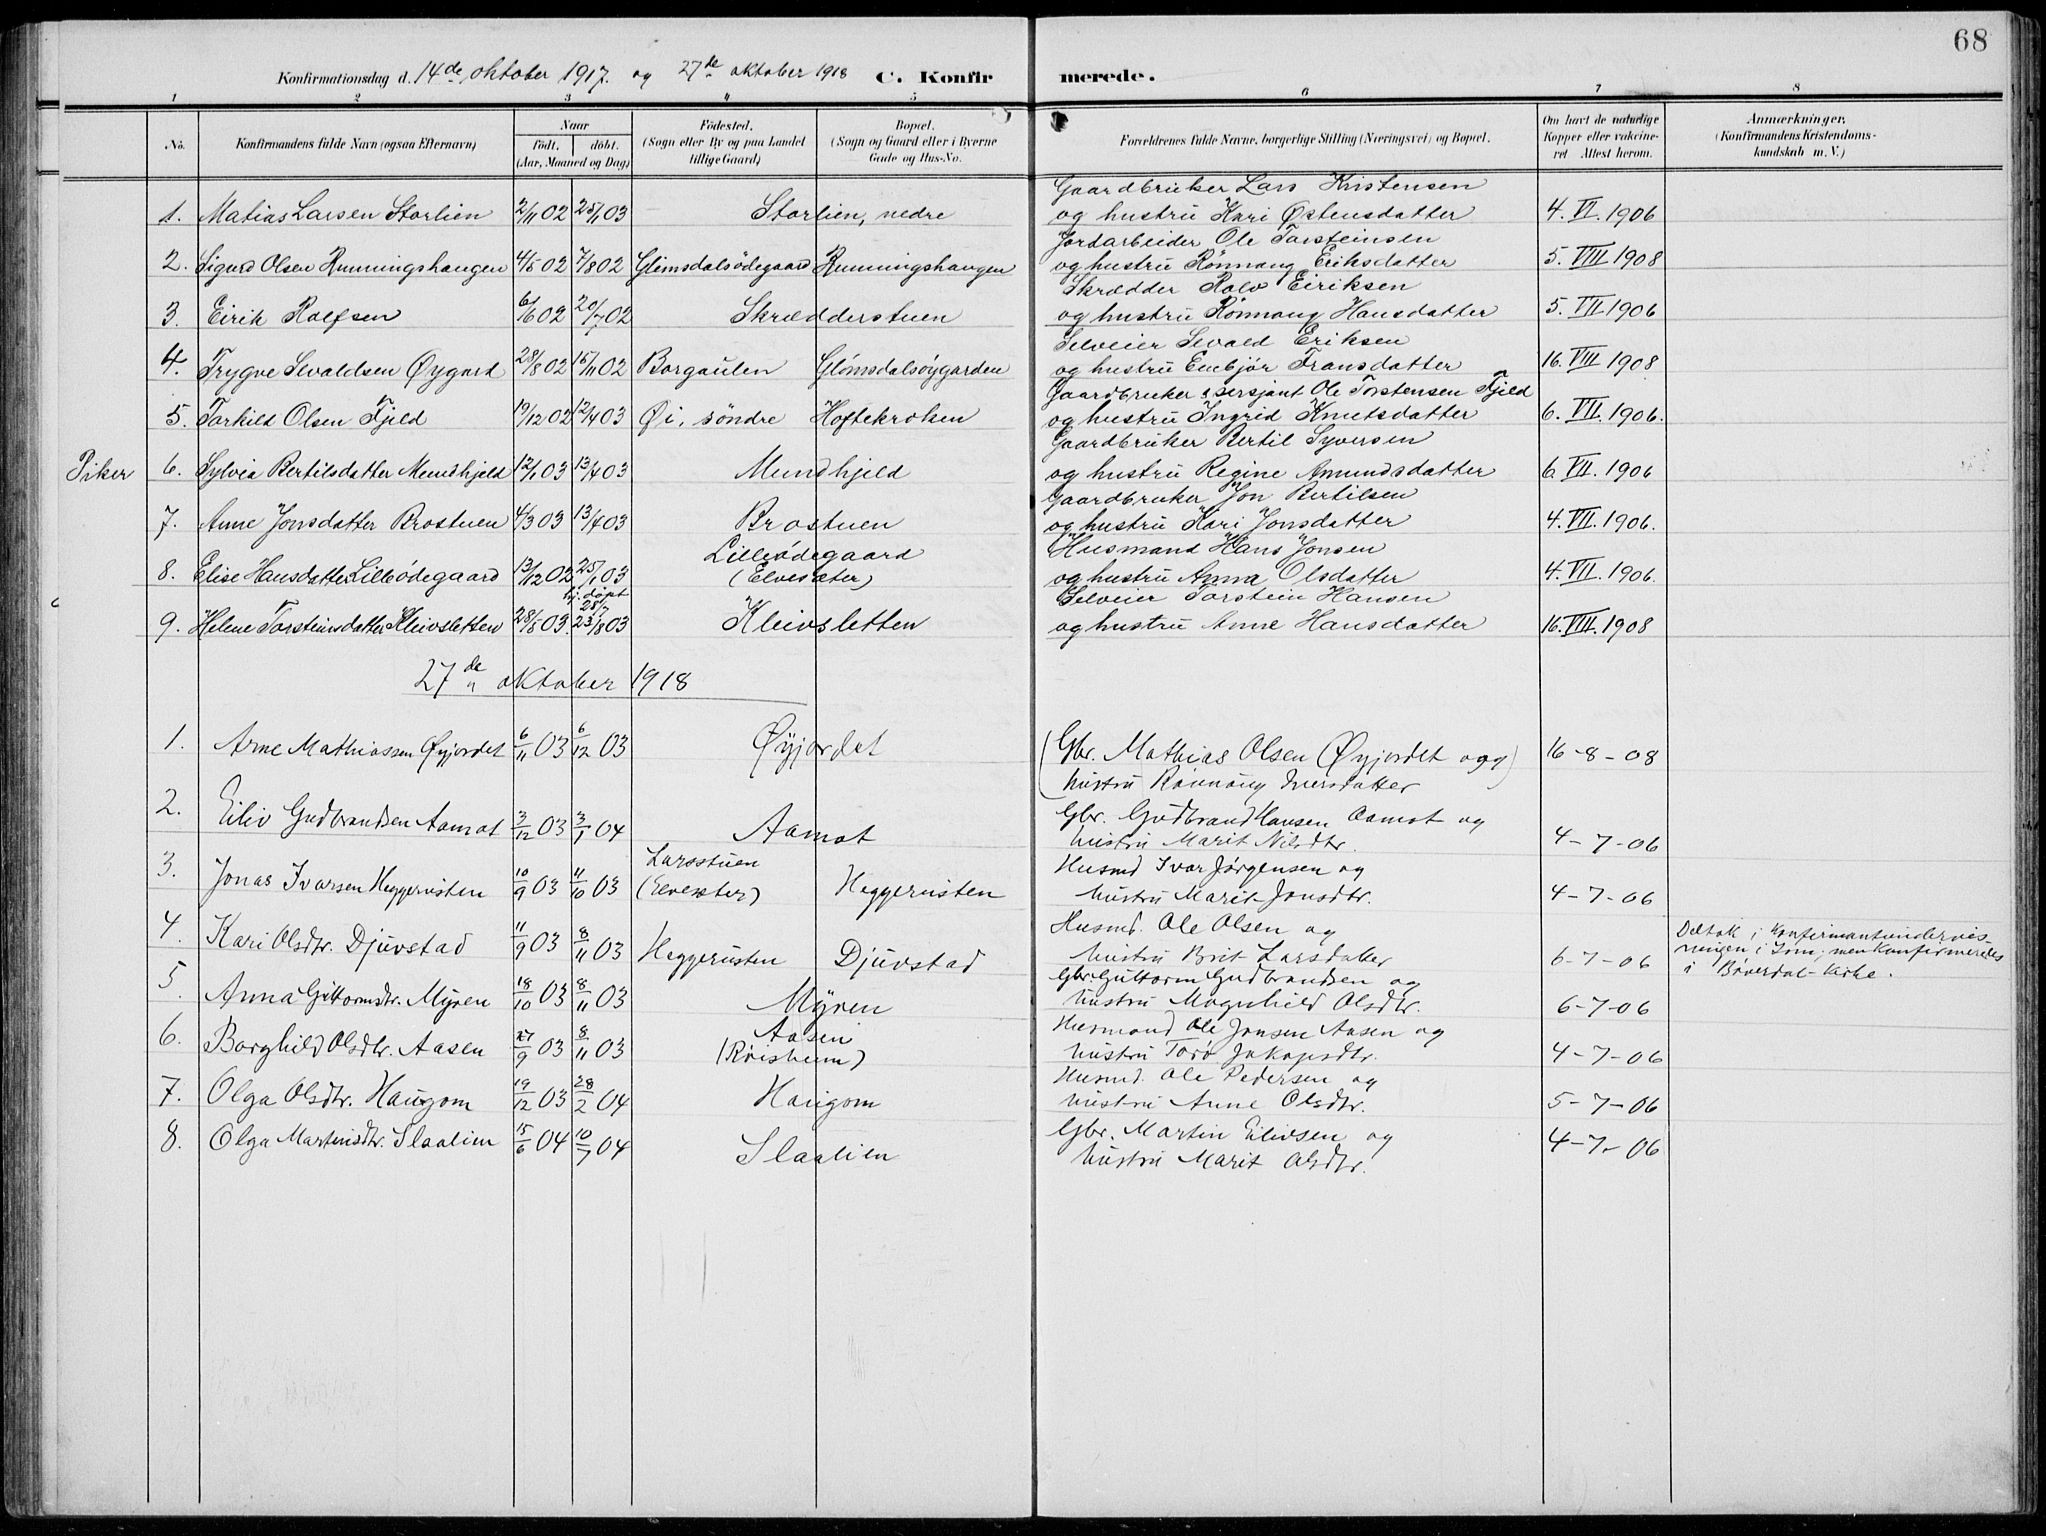 68
Konfirmationsdag d. 14de oktober 1917. og 27de oktober 1918 C. Konfir merede.
1 2 3 4 5 6 7 8
No. Konfirmandens fulde Navn (ogsaa Efternavn) Naar født. døbt. (Aar, Maaned og Dag) Fødested. (Sogn eller By og paa Landet tillige Gaard) Bopæl. (Sogn og Gaard eller i Byerne Gade og Hus-No. Forældrenes fulde Navne, borgerlige Stilling (Næringsvei) og Bopæl. Om havt de naturlige Kopper eller vaccineret Attest herom. Anmærkninger. (Konfirmandens Kristendomskundskab m. V.)
Gaardbruker Lars Kristensen
1. Matias Larsen Storlien 2/11 02 25/1 03 Storlien, nedre og hustru Kari Østensdatter 4. VI. 1906
Jordarbeider Ole Torsteinsen
2. Sigurd Olsen Runningshaugen 4/5 02 7/8 02 Glimsdalsödegaard Runningshaugen og hustru Rönnaug Eriksdatter 5. VIII 1908
Skrædder Rolv Eiriksen
3. Eirik Rolfsen 6/6 02 20/7 02 Skrædderstuen og hustru Rönnaug Hansdatter 5. VII. 1906
Selveier Sevald Eriksen
4. Trygve Sevaldsen Øygard 28/8 02 16/11 02 Borgaulen Glömsdalsöygarden og hustru Embjör Fransdatter 16. VIII 1908
Gaardbruker & sersjant Ole Torstensen Fjeld
5. Torkild Olsen Fjeld 19/12 02 12/4 03 Øi, söndre Hoftekroken og hustru Ingrid Knutsdatter 6. VII. 1906.
Gaardbruker Bertil Syversen
Piker 6. Sylvia Bertilsdatter Mundhjeld 12/1 03 13/4 03 Mundhjeld og hustru Regine Amundsdatter 6. VII. 1906
Gaardbruker Jon Bertilsen
7. Anne Jonsdatter Brostuen 4/3 03 13/4 03 Brostuen og hustru Kari Jonsdatter 4. VII. 1906.
Lilleödegaard Husmand Hans Jonsen
8. Elise Hansdatter Lilleödegaard 13/12 02 25/1 03 (Elvesæter) og hustru Anna Olsdatter 4. VII. 1906.
hj. döpt 28/7 Selveier Torstein Hansen
9. Helene Torsteinsdatter Kleivsletten 28/5 03. 23/8 03 Kleivsletten og hustru Anne Hansdatter 16. VIII. 1908
27de oktober 1918
1. Arne Mathiassen Øyjordet 6/11 03 6/12 03 Øyjordet (Gbr. Mathias Olsen Øyjordet og 16-8-08
hustru Rönnaug Iversdatter
2. Eiliv Gudbrandsen Aamot 3/12 03 3/1 04 Aamot Gbr. Gudbrand Hansen Aamot og
hustru Marit Nilsdtr. 4-7-06
3. Jonas Ivarsen Heggerusten 10/9 03 11/10 03 Larsstuen (Elvesæter) Heggerusten Husmd Ivar Jørgensen og
hustru Marit Jonsdtr. 4-7-06
4. Kari Olsdtr. Djuvstad 11/9 03 8/11 03 Heggerusten Djuvstad Husmd. Ole Olsen og
hustru Brit Larsdatter 6-7-06
Deltok i konfirmantundervis-
ningen i Lom, men konfirmeredes
i Bøverdal kirke.
5. Anna Guttormsdtr. Myren 18/10 03 8/11 03 Myren Gbr. Guttorm Gudbrandsen og
hustru Magnhild Olsdtr. 6-7-06
6. Borghild Olsdtr. Aasen 27/9 03 8/11 03 Aasen (Røisheim) Husmand Ole Jonsen Aasen og
hustru Torø Jakopsdtr. 4-7-06
7. Olga Olsdtr. Haugom 19/12 03 28/2 04 Haugom Husmd. Ole Pedersen og
hustru Anne Olsdtr. 5-7-06
8. Olga Martinsdtr. Slaalien 15/6 04 10/7 04 Slaalien Gbr. Martin Eilivsen og 4-7-06
hustru Marit Olsdtr.